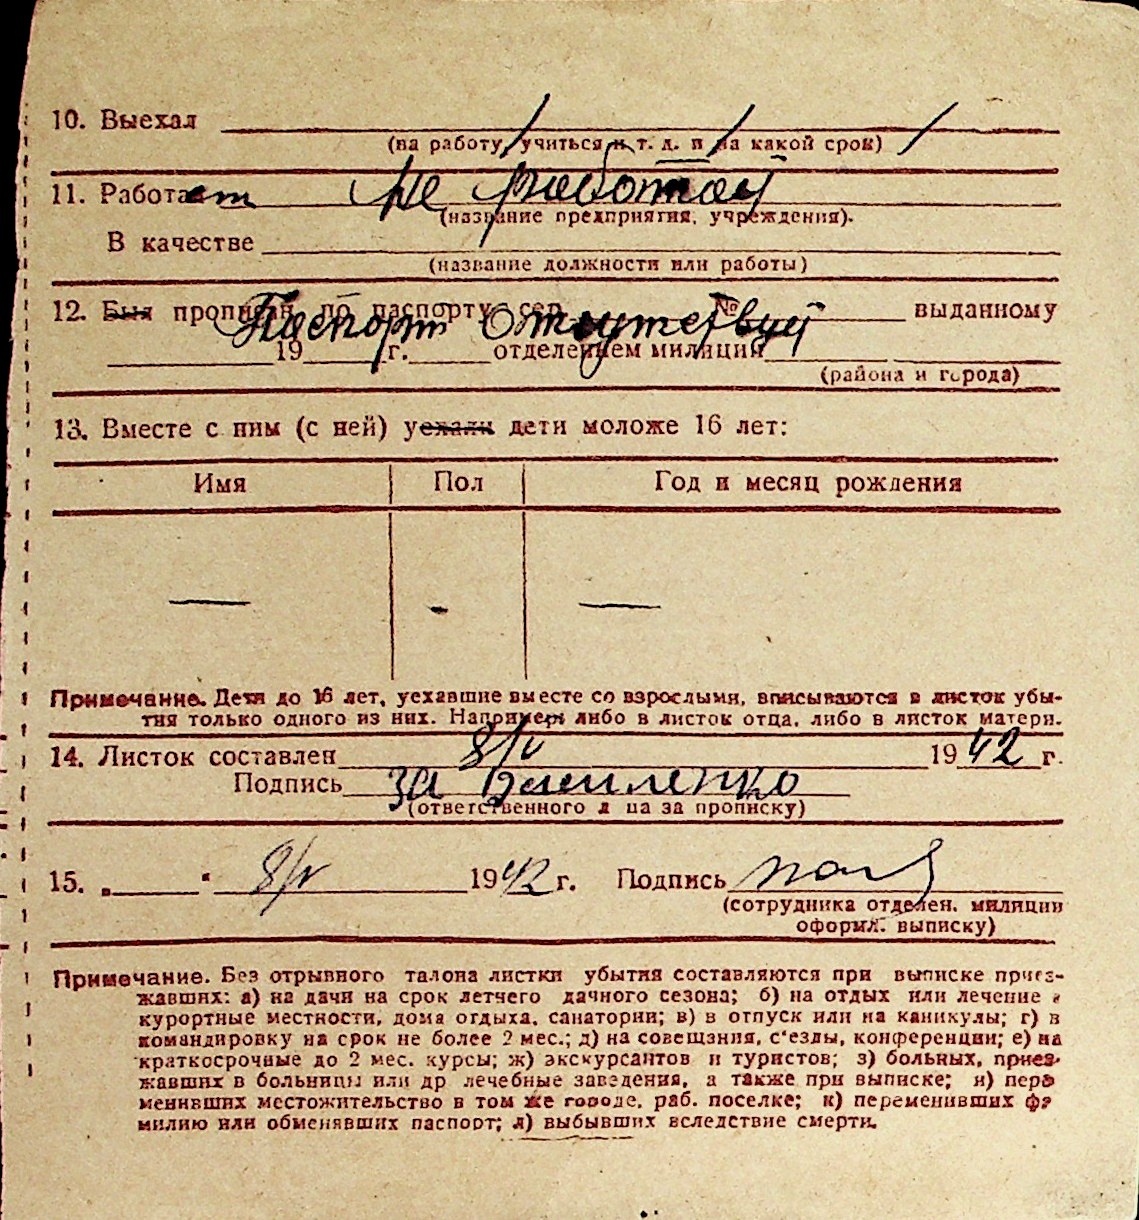 10. Выехал
(на работу, учиться и т. д. и на какой срок)
11. Работает не работает
(название предприятия, учреждения).
В качестве
(название должности или работы)
12. Был прописан по паспорту сер. № выданному
Паспорт отсутствует
19 г. отделением милиции
(района и города)
13. Вместе с ним (с ней) уехали дети моложе 16 лет:
Имя Пол Год и месяц рождения
— - —
Примечание. Дети до 16 лет, уехавшие вместе со взрослыми, вписываются в листок убы-
тия только одного из них. Например либо в листок отца, либо в листок матери.
14. Листок составлен 8/V 1942 г.
Подпись за
(ответственного л ца за прописку)
15. „ “ 8/V 1942 г. Подпись
(сотрудника отделен. милиции
оформл. выписку)
Примечание. Без отрывного талона листки убытия составляются при выписке приез-
жавших: а) на дачи на срок летнего дачного сезона; б) на отдых или лечение в
курортные местности, дома отдыха, санатории; в) в отпуск или на каникулы; г) в
командировку на срок не более 2 мес.; д) на совещания, с'езды, конференции; е) на
краткосрочные до 2 мес. курсы; ж) экскурсантов и туристов; з) больных, приез-
жавших в больницы или др лечебные заведения, а также при выписке; и) пере
менивших местожительство в том же городе, раб. поселке; к) переменивших фа
милию или обменявших паспорт; л) выбывших вследствие смерти.